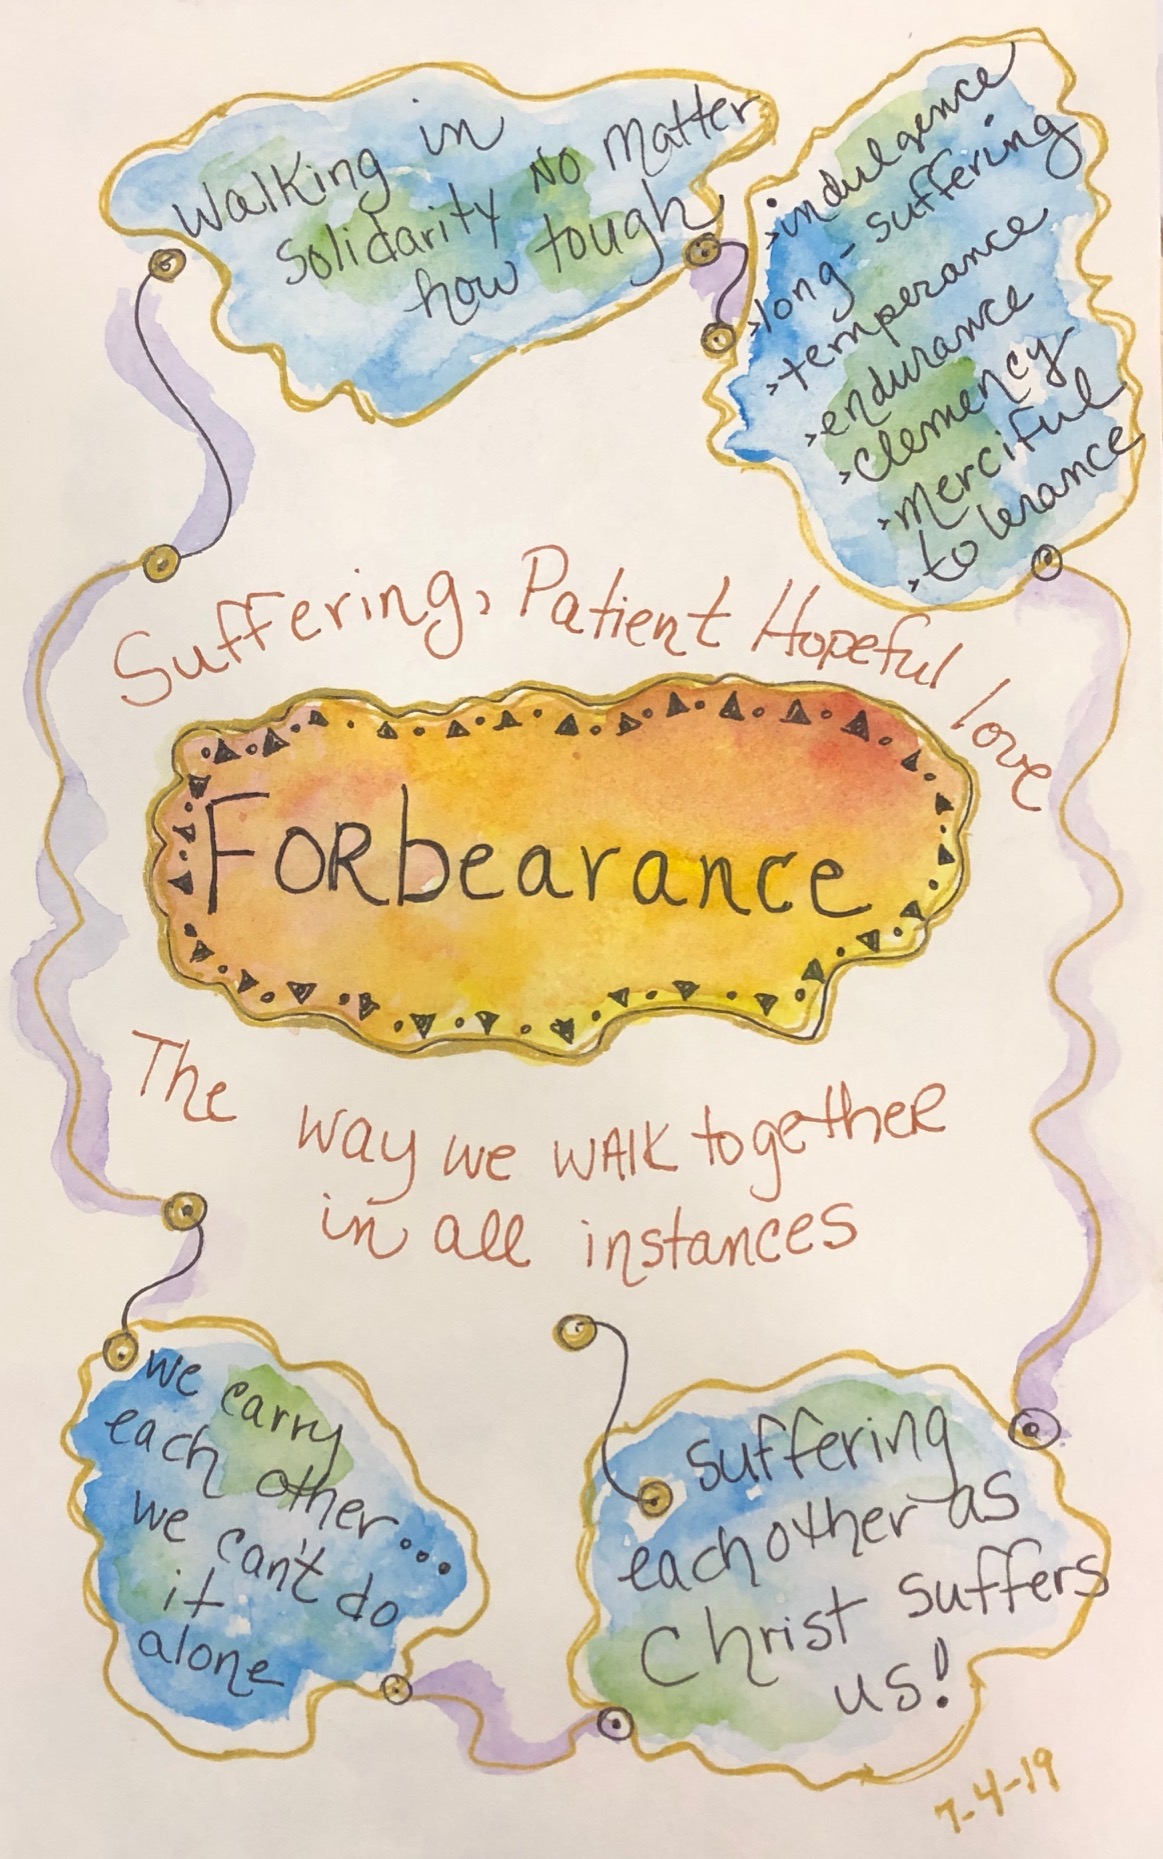 Walking in
solidarity No Matter
how tough
indulgence
long-suffering
temperance
endurance
clemency
merciful
tolerance
Suffering, Patient Hopeful love
FORbearance
The way we WAlK together
in all instances
we carry
each other...
we can't do
it
alone
suffering
each other as
Christ suffers
us!
7-4-19